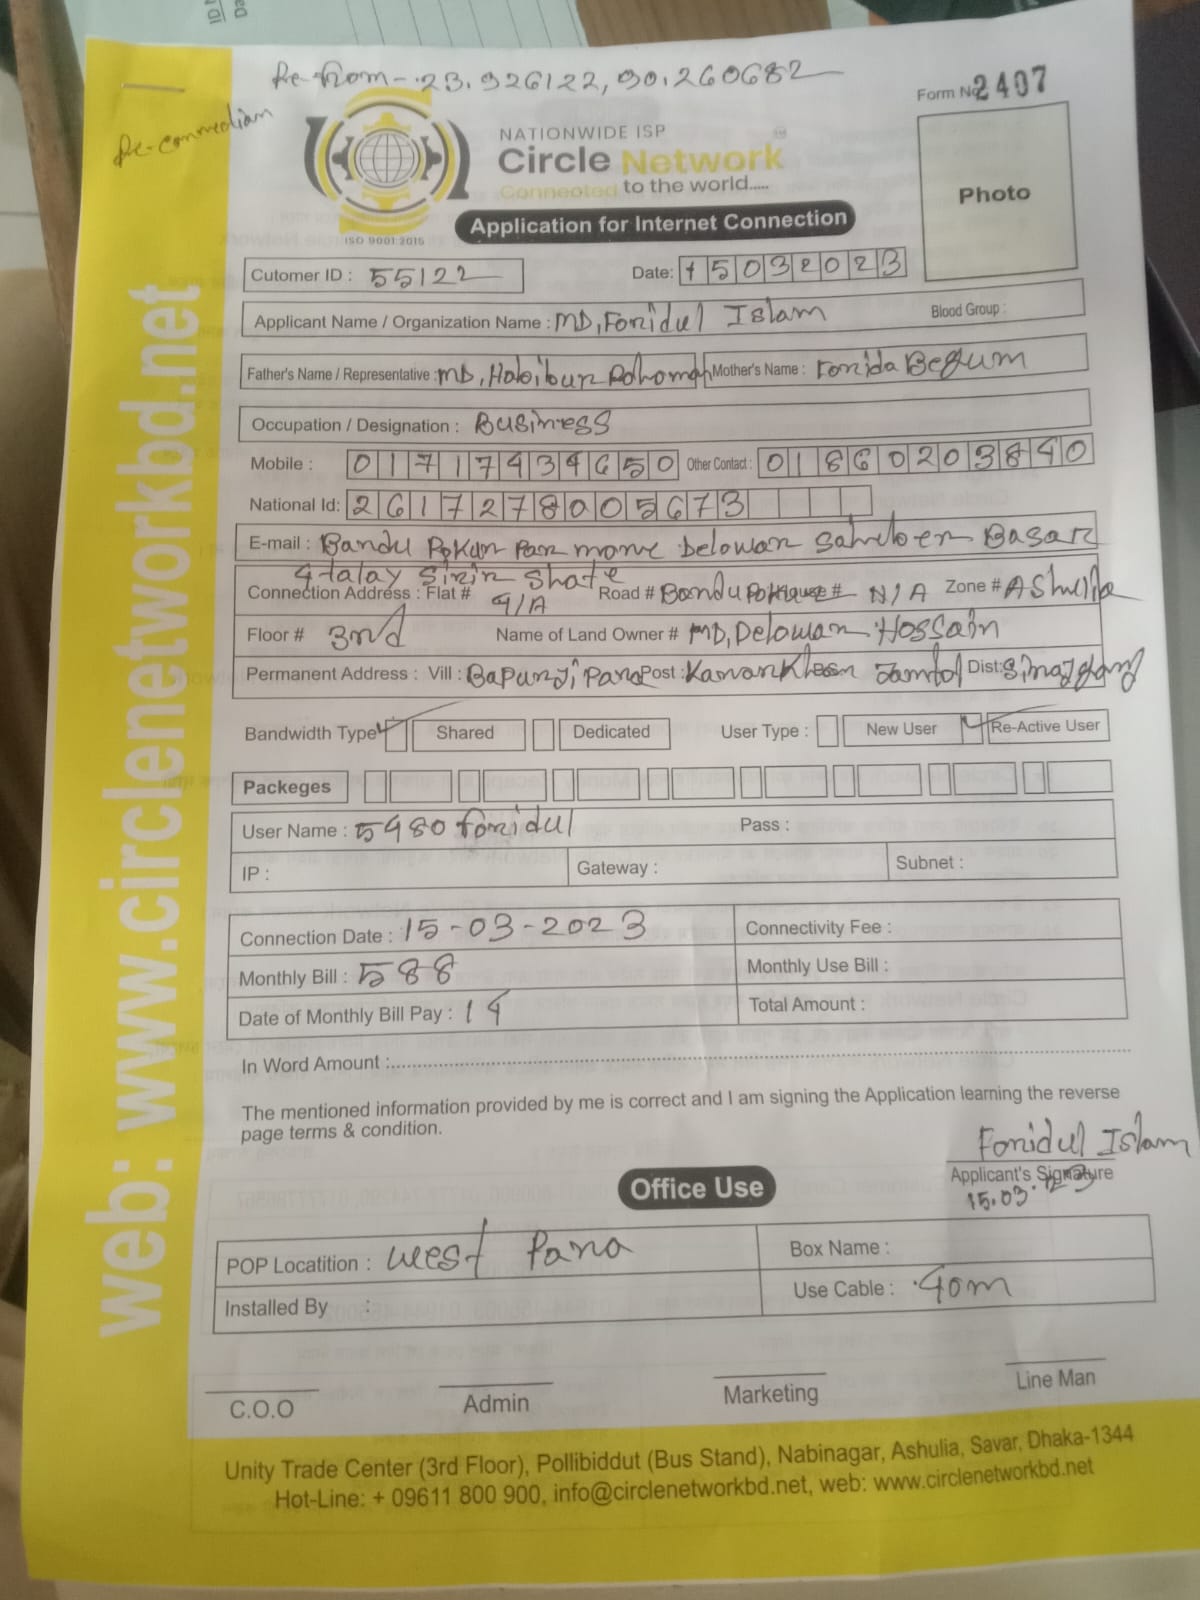 23.926122, 90.260682
Form No 2407
Re-connection
NATIONWIDE ISP
Circle Network
Connected to the world.....
ISO 9001:2015
Application for Internet Connection
Photo
Cutomer ID : 55122
Date: 15032023
Applicant Name / Organization Name : MD, Foridul Islam
Blood Group :
Father's Name / Representative : MD, Habibur Rohoman
Mother's Name : Forida Begum
Occupation / Designation : Business
Mobile : 01717434650
Other Contact : 01860203840
National Id: 2617278005673
E-mail : Bandu Pokur Par more Delowar Saheber Basar
4 talay Sirir Shate
Connection Address : Flat # 4/A Road # Bandu Pok House # N/A Zone # AShulia
Floor # 3rd
Name of Land Owner # MD, Delowar Hossain
Permanent Address : Vill : Post : Dist:
Bandwidth Type Shared Dedicated
User Type : New User Re-Active User
Packeges
User Name : 5480 foridul
Pass :
IP :
Gateway :
Subnet :
Connection Date : 15-03-2023
Connectivity Fee :
Monthly Bill : 588
Monthly Use Bill :
Date of Monthly Bill Pay : 14
Total Amount :
In Word Amount :
The mentioned information provided by me is correct and I am signing the Application learning the reverse
page terms & condition.
Foridul Islam
Applicant's Signature
15.03.23
Office Use
POP Locatition : West Para
Box Name :
Installed By :
Use Cable : 40m
C.O.O
Admin
Marketing
Line Man
Unity Trade Center (3rd Floor), Pollibiddut (Bus Stand), Nabinagar, Ashulia, Savar, Dhaka-1344
Hot-Line: + 09611 800 900, info@circlenetworkbd.net, web: www.circlenetworkbd.net
web: www.circlenetworkbd.net